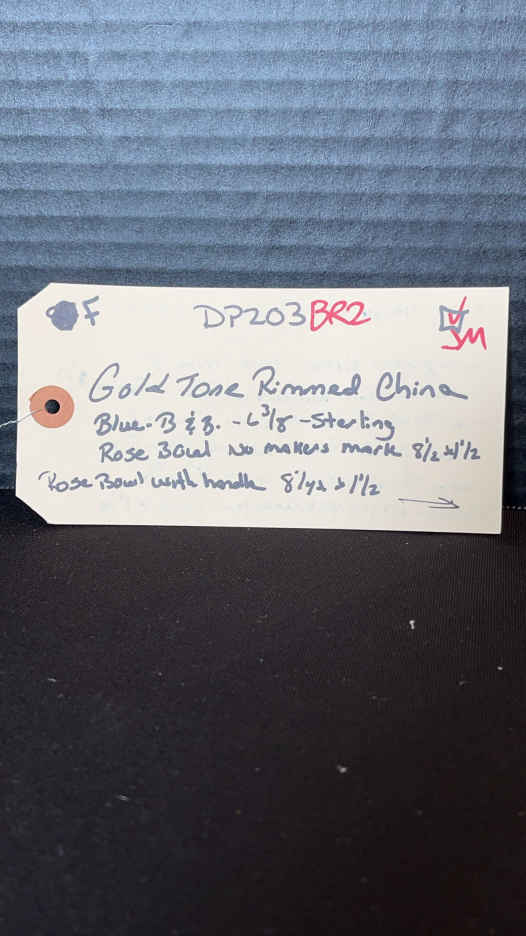 F DP203BR2 JM
Gold Tone Rimmed China
Blue - B & B. - 6 3/8 - Sterling
Rose Bowl No makers mark 8 1/2 x 1 1/2
Rose Bowl with handle 8 1/4 x 1 1/2